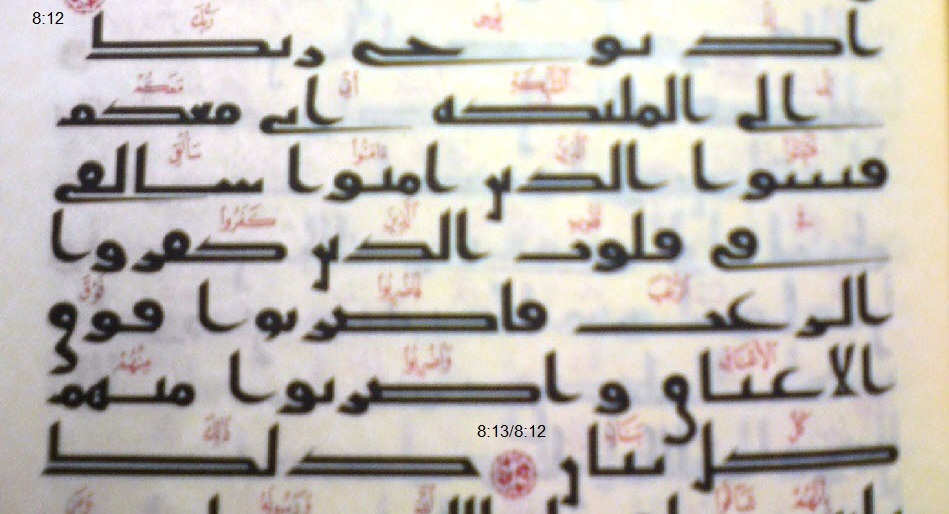 8:12
اذ يوحى ربك
الى الملئكه انى معكم
فثبتوا الذين امنوا سالقى
فى قلوب الذين كفروا
الرعب فاضربوا فوق
الاعناق واضربوا منهم
8:13/8:12
كل بنان ذلك